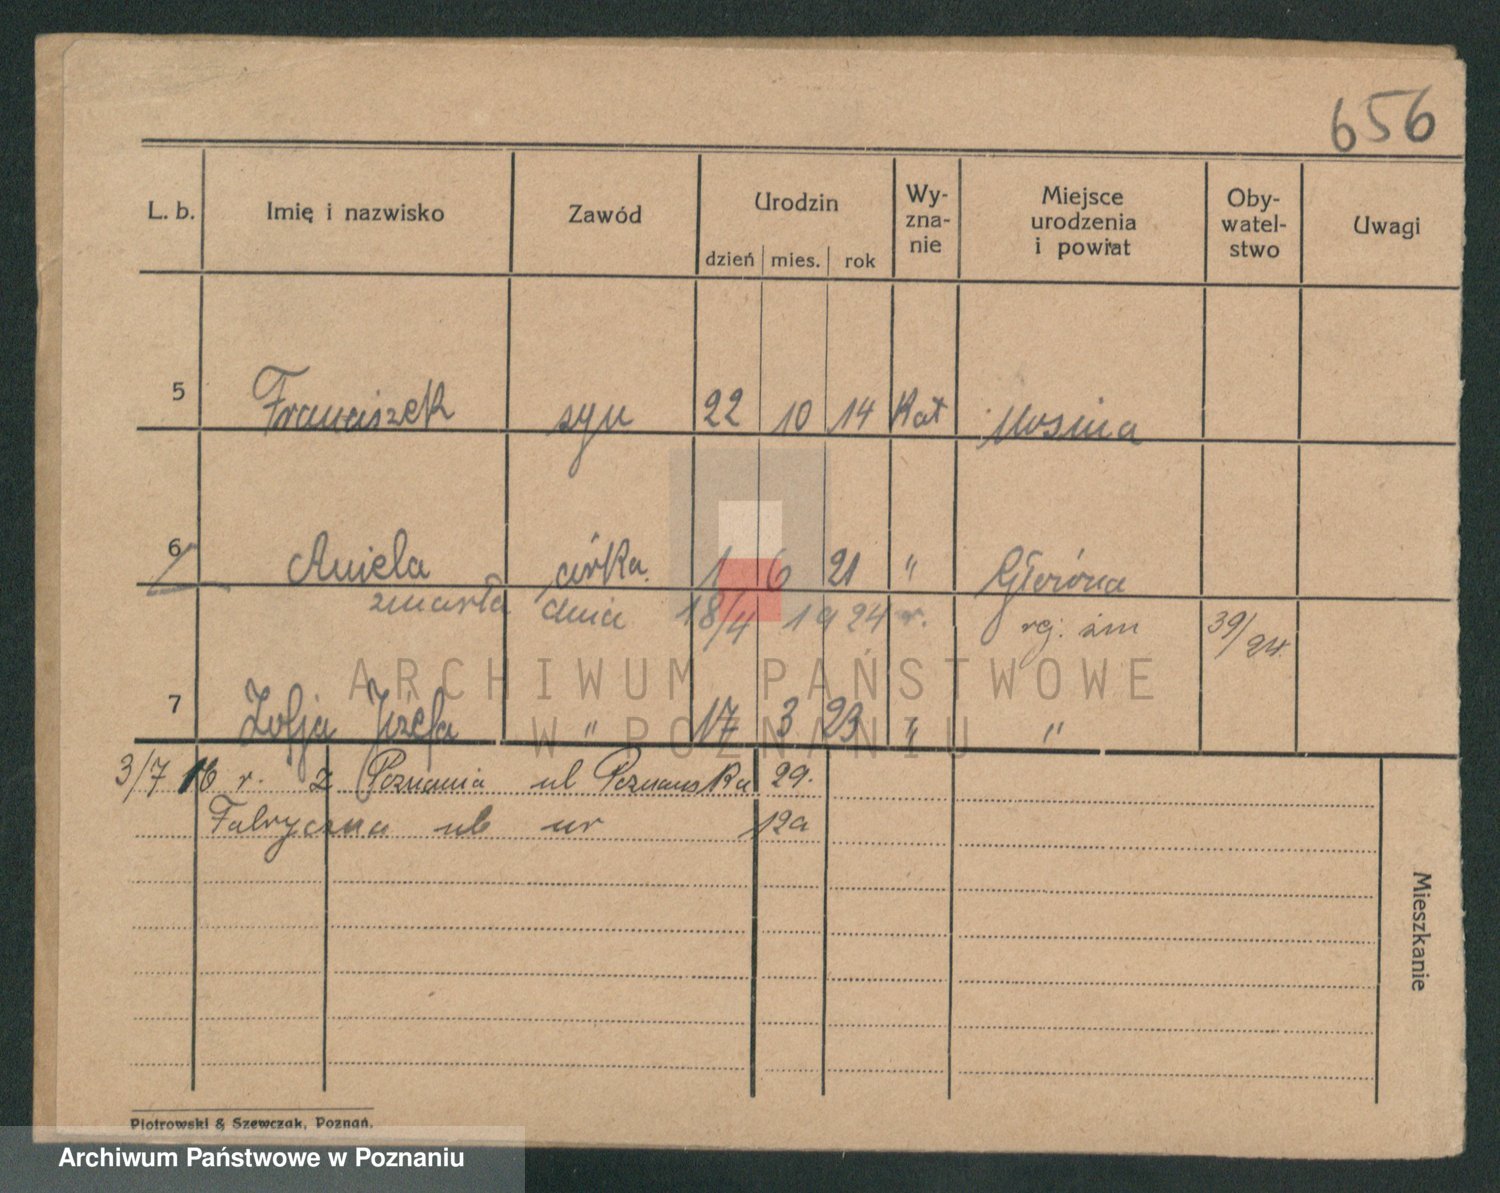 656
L. b. Imię i nazwisko Zawód Urodzin dzień mies. rok Wy-zna-nie Miejsce urodzenia i powiat Oby-watel-stwo Uwagi
5 Franciszek syn 22 10 14 Kat Mosina
6 Aniela córka 1 6 21 " Główna
zmarła dnia 18/4 1924 r. rej. zm 39/24.
7 Zofja Józefa " 17 3 23 " "
3/7 16 r. z Poznania ul Poznańska 29.
Fabryczna ul nr 12a
Mieszkanie
Piotrowski & Szewczak, Poznań.
ARCHIWUM PAŃSTWOWE
W POZNANIU
Archiwum Państwowe w Poznaniu